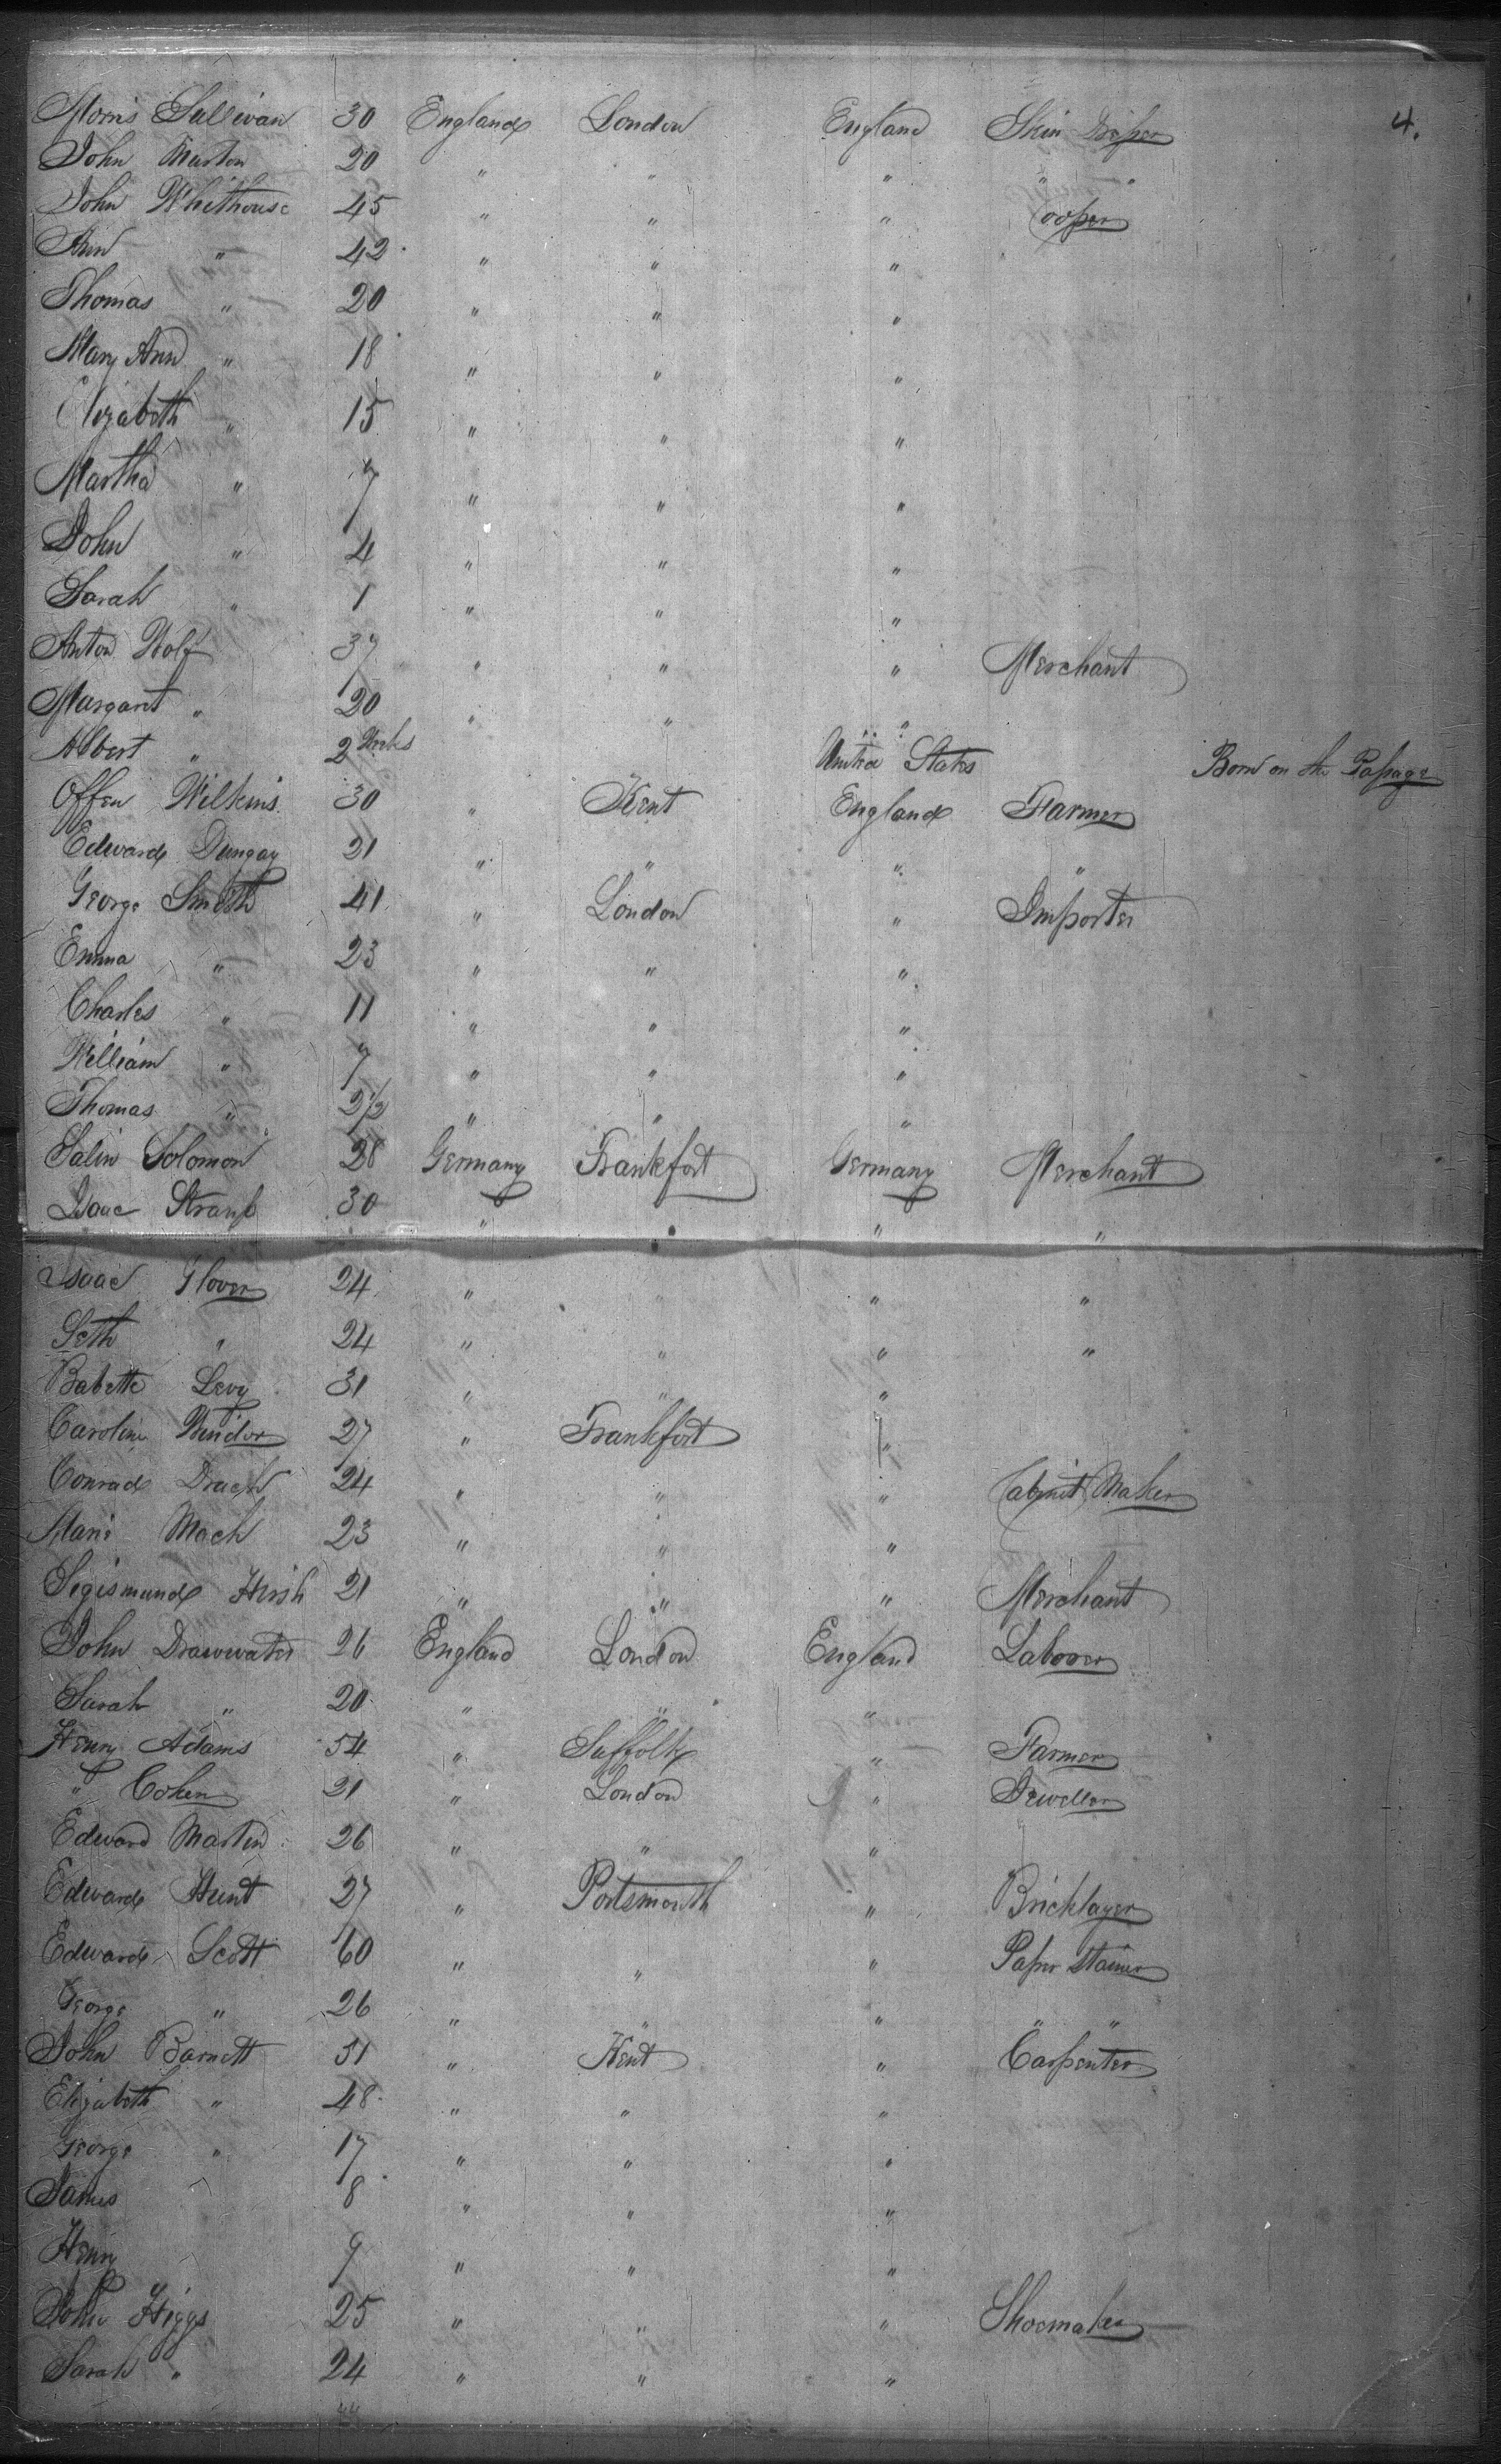 4.
Morris Sullivan 30 England London England Skin Draper
John Marton 20 " " " " "
John Whithouse 45 " " " Cooper
Ann " 42 " " "
Thomas " 20 " " "
Mary Ann " 18 " " "
Elizabeth " 15 " " "
Martha " 7 " " "
John " 4 " " "
Sarah " 1 " " "
Anton Wolf 37 " " " Merchant
Margaret " 20 " " "
Albert " 2 Weeks United States Born on the Passage
Offen Wilkins 30 " Kent England Farmer
Edward Dungay 21 " " " "
George Smith 41 " London " Importer
Emma " 23 " " "
Charles " 11 " " "
William " 7 " " "
Thomas " 2 1/2 " " "
Salin Solomon 28 Germany Frankfort Germany Merchant
Isaac Strauss 30 " " " "
Isaac Glover 24 " " " "
Seth " 24 " " " "
Babette Levy 31 " " "
Caroline Windor 27 " Frankfort "
Conrad Drach 24 " " " Cabinet Maker
Mari Mach 23 " " "
Segismund Hirsh 21 " " " Merchant
John Drawwater 26 England London England Laborer
Sarah " 20 " " "
Henry Adams 54 " Suffolk " Farmer
" Cohen 21 " London " Jeweller
Edward Martin 26 " " "
Edward Hunt 27 " Portsmouth " Bricklayer
Edward Scott 60 " " " Paper Stainer
George " 26 " " " " "
John Barnett 51 " Kent " Carpenter
Elizabeth " 48 " " "
George " 17 " " "
James 8 " " "
Henry 9 " " "
John Higgs 25 " " " Shoemaker
Sarah " 24 " " "
44